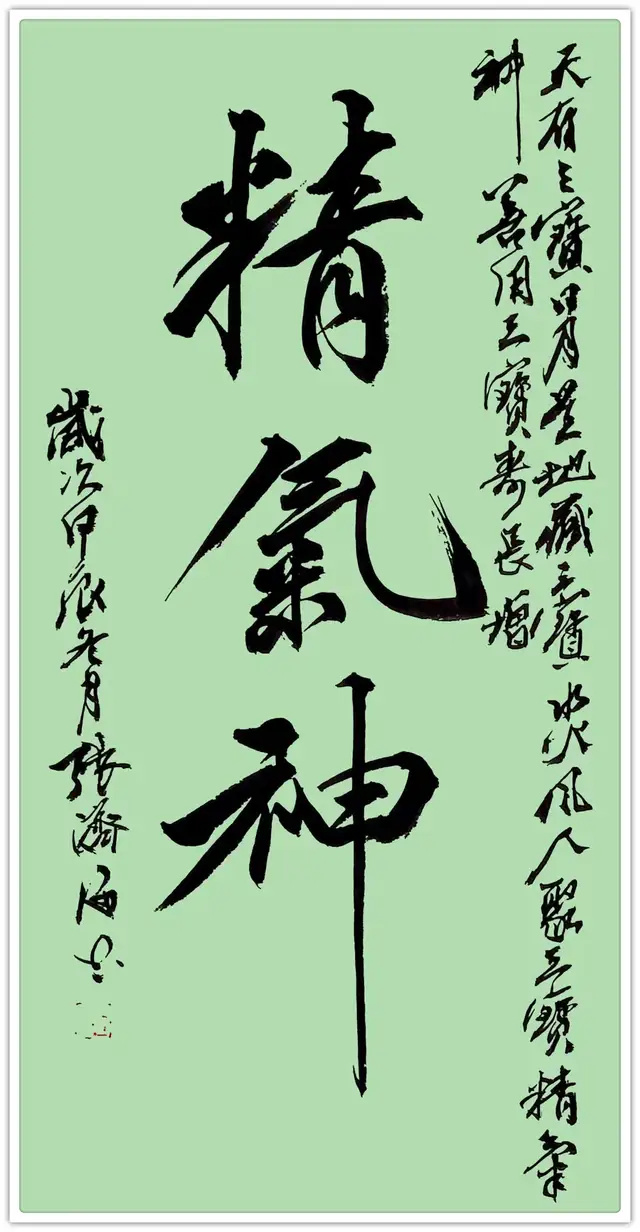 天有三寶日月星地藏三寶水火風人聚三寶精氣
神善用三寶壽長增
精氣神
歲次甲辰冬月張濟海書